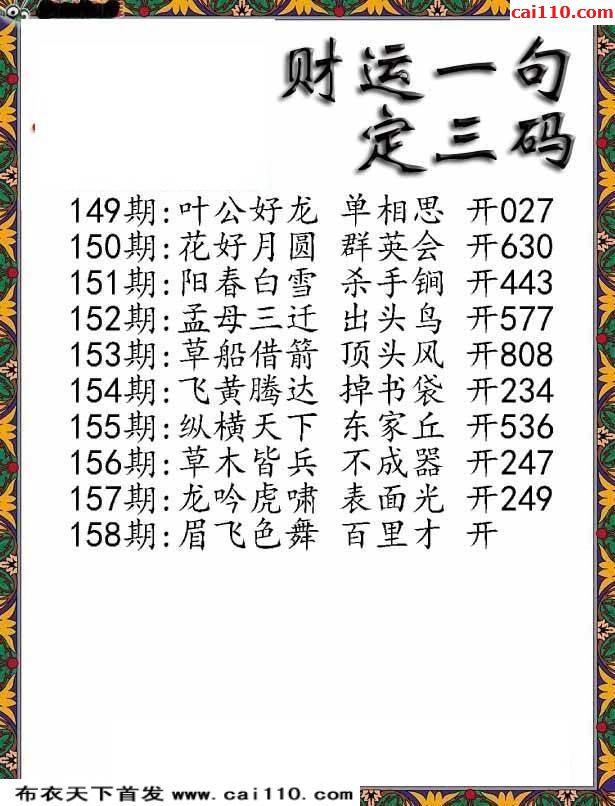 cai110.com
财运一句
定三码
149期:叶公好龙 单相思 开027
150期:花好月圆 群英会 开630
151期:阳春白雪 杀手锏 开443
152期:孟母三迁 出头鸟 开577
153期:草船借箭 顶头风 开808
154期:飞黄腾达 掉书袋 开234
155期:纵横天下 东家丘 开536
156期:草木皆兵 不成器 开247
157期:龙吟虎啸 表面光 开249
158期:眉飞色舞 百里才 开
布衣天下首发 www.cai110.com